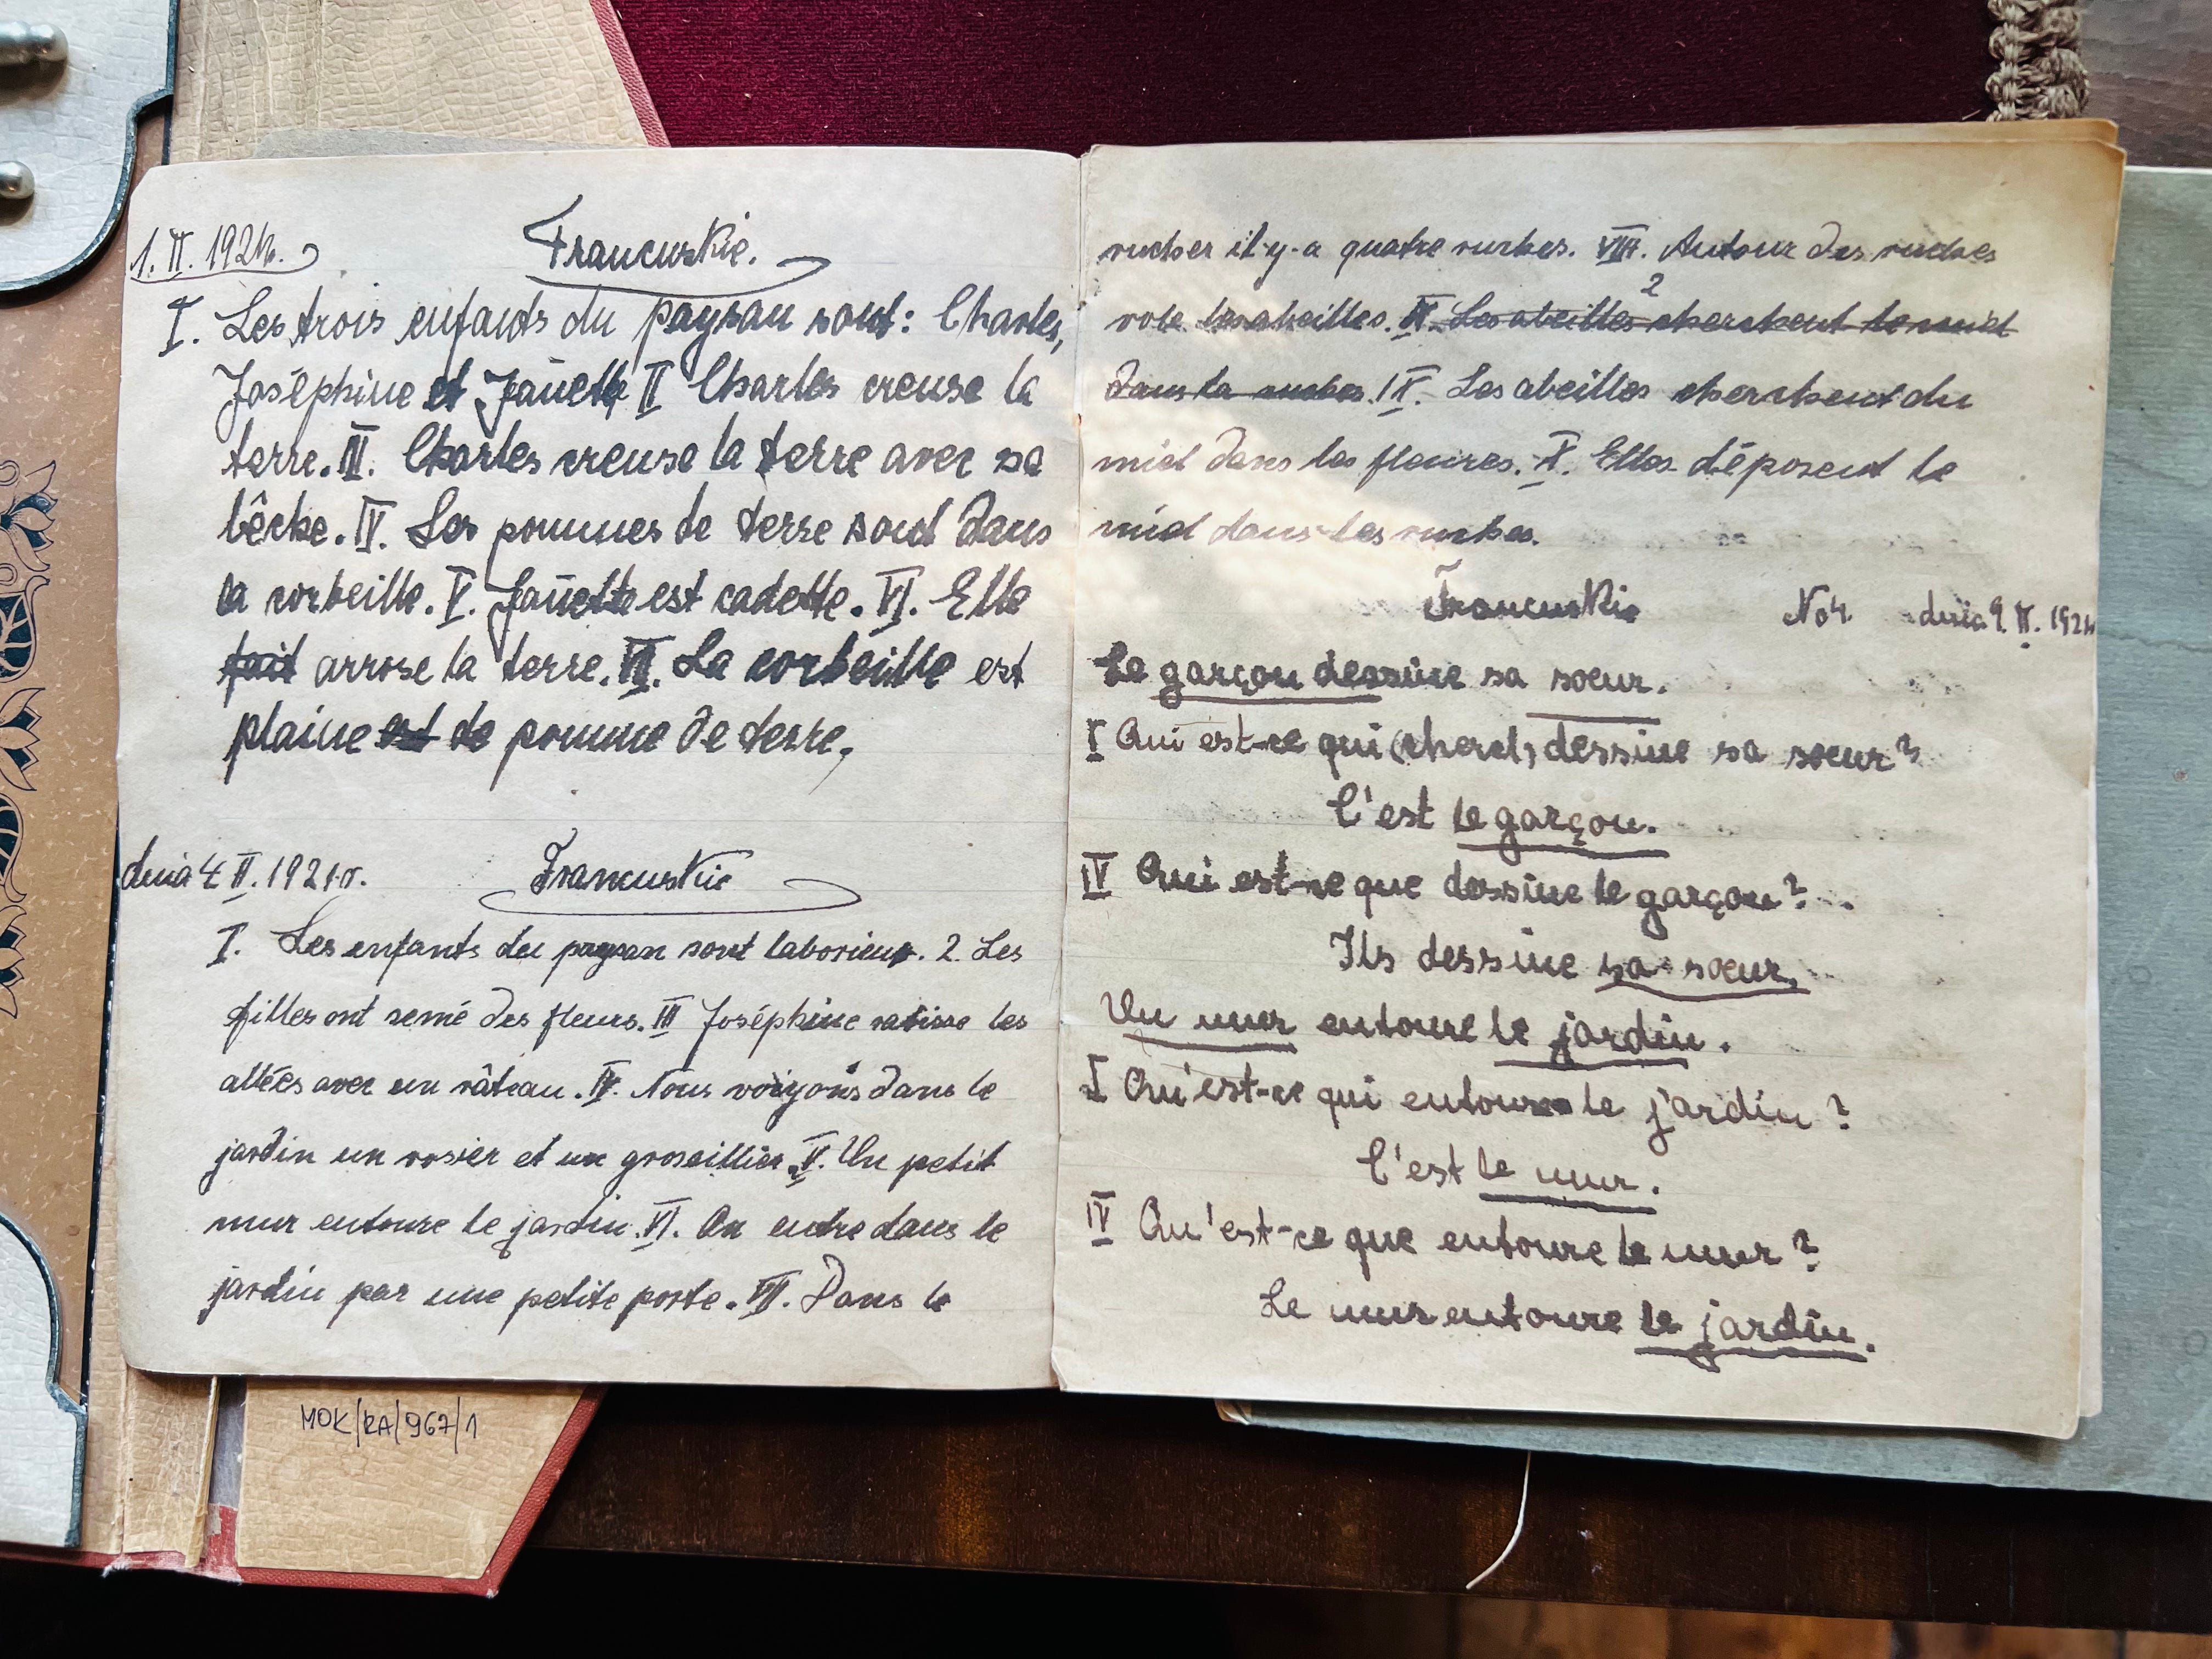 1. II. 1924r. Francuskie.
I. Les trois enfants du paysan sont: Charles,
Joséphine et Jañette II Charles creuse la
terre. III. Charles creuse la terre avec sa
bêche. IV. Les pommes de terre sont dans
la corbeille. V. Jañette est cadette. VI. Elle
fait arrose la terre. VII. La corbeille est
plaine est de pomme de terre.
dnia 4 II. 1924.r. Francuskie
I. Les enfants du paysan sont laborieux. 2. Les
filles ont semé des fleurs. III Joséphine ratisse les
allées avec un râteau. IV. Nous voiyons dans le
jardin un rosier et un groseillier. V. Un petit
mur entoure le jardin. VI. On entre dans le
jardin par une petite porte. VII. Dans le
rucher il-y-a quatre ruches. VIII. Autour des ruches
vole les abeilles. IX. Les abeilles 2 cherchent le miel
dans la ruches. IX. Les abeilles cherchent du
miel dans les fleures. X. Elles déposent le
miel dans les ruches.
Francuskie No4. dnia 9. II. 1924
Le garçon dessine sa soeur.
I Qui est-ce qui (cherch) dessine sa soeur?
C'est le garçon.
IV Qui est-ce que dessine le garçon?
Ils dessine sa soeur.
Un mur entoure le jardin.
I Qu'est-ce qui entoure le jardin?
C'est le mur.
IV Qu'est-ce que entoure le mur?
Le mur entoure le jardin.
MOK/RA/967/1